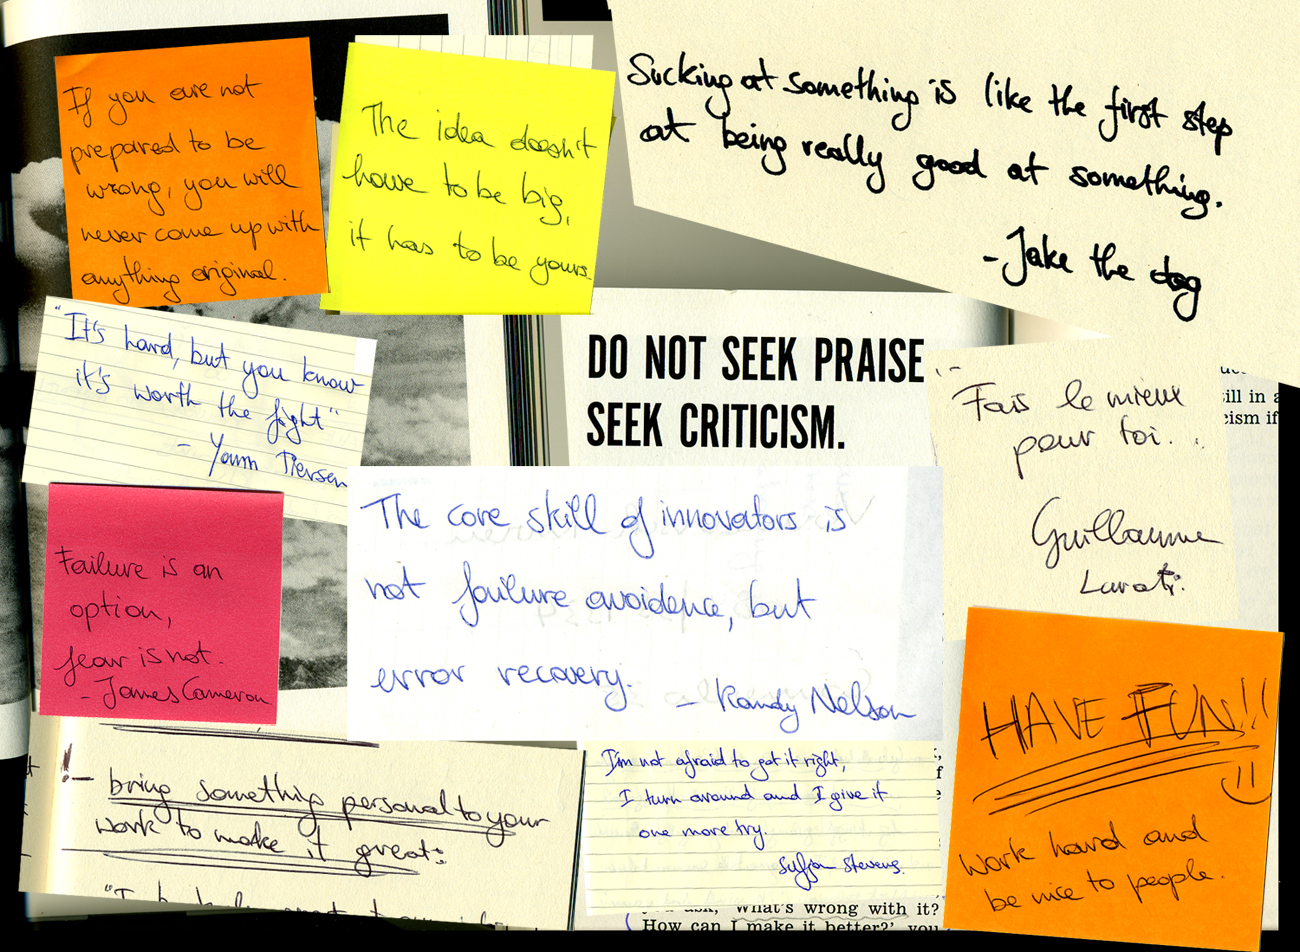 If you are not
prepared to be
wrong, you will
never come up with
anything original.
The idea doesn't
have to be big,
it has to be yours.
Sucking at something is like the first step
at being really good at something.
- Jake the dog
"It's hard, but you know
it's worth the fight"
- Yann Tiersen
DO NOT SEEK PRAISE
SEEK CRITICISM.
Fais le mieux
pour toi.
Guillaume
Lurati
ill in a
cism if
Failure is an
option,
fear is not.
- James Cameron
The core skill of innovators is
not failure avoidence, but
error recovery.
- Randy Nelson
HAVE FUN!!
Work hard and
be nice to people.
!- bring something personal to your
work to make it great:
I'm not afraid to get it right,
I turn around and I give it
one more try.
Sufjan Stevens.
ask, 'What's wrong with it?
How can I make it better?', you